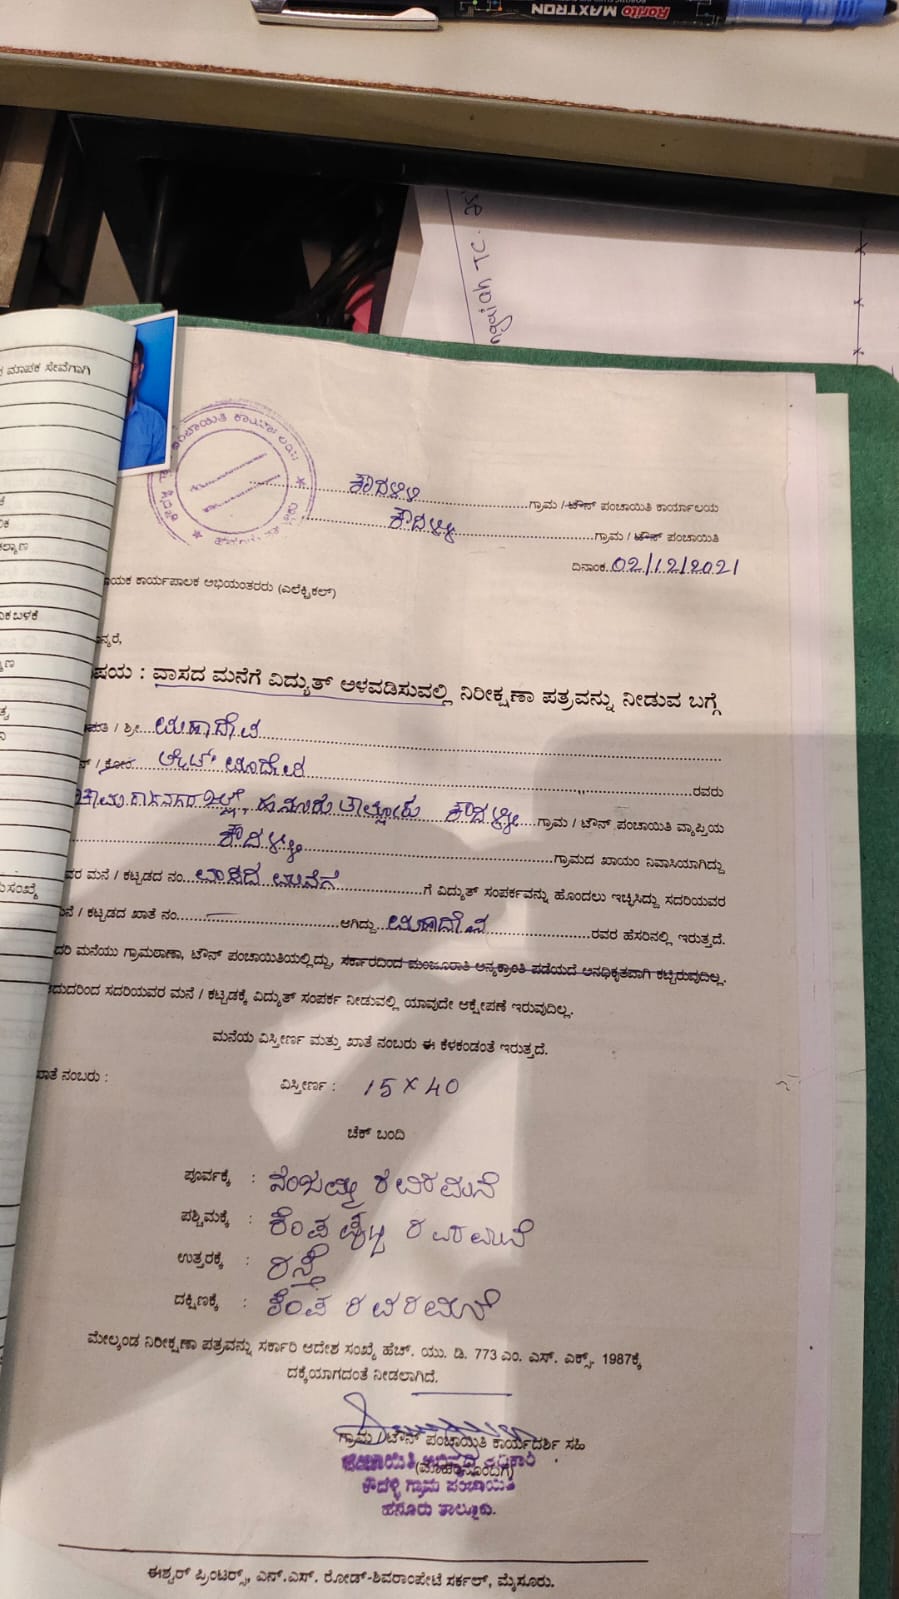 Rorito MAXTRON
ngaiah TC.
ಮಾಪಕ ಸೇವೆಗಾಗಿ
ಪಂಚಾಯಿತಿ ಕಾರ್ಯಾಲಯ
ಕೌದಳ್ಳಿ ಗ್ರಾಮ / ಟೌನ್ ಪಂಚಾಯಿತಿ ಕಾರ್ಯಾಲಯ
ಕೌದಳ್ಳಿ ಗ್ರಾಮ / ಟೌನ್ ಪಂಚಾಯಿತಿ
ದಿನಾಂಕ 02/12/2021
ಾಯಕ ಕಾರ್ಯಪಾಲಕ ಅಭಿಯಂತರರು (ಎಲೆಕ್ಟ್ರಿಕಲ್)
ನ್ಯರೆ,
ಷಯ : ವಾಸದ ಮನೆಗೆ ವಿದ್ಯುತ್ ಅಳವಡಿಸುವಲ್ಲಿ ನಿರೀಕ್ಷಣಾ ಪತ್ರವನ್ನು ನೀಡುವ ಬಗ್ಗೆ
ಮತಿ / ಶ್ರೀ ಮಹಾದೇವ
ನ್ / ಕೋಂ ಲೇಟ್ ಮಾದೇವ ರವರು
ಚಾಮರಾಜನಗರ ಜಿಲ್ಲೆ, ಹನೂರು ತಾಲ್ಲೋಕು ಕೌದಳ್ಳಿ ಗ್ರಾಮ / ಟೌನ್ ಪಂಚಾಯಿತಿ ವ್ಯಾಪ್ತಿಯ
ಕೌದಳ್ಳಿ ಗ್ರಾಮದ ಖಾಯಂ ನಿವಾಸಿಯಾಗಿದ್ದು
ವರ ಮನೆ / ಕಟ್ಟಡದ ನಂ. ವಾಸದ ಮನೆಗೆ ಗೆ ವಿದ್ಯುತ್ ಸಂಪರ್ಕವನ್ನು ಹೊಂದಲು ಇಚ್ಛಿಸಿದ್ದು ಸದರಿಯವರ
ಮನೆ / ಕಟ್ಟಡದ ಖಾತೆ ನಂ. ಆಗಿದ್ದು ಮಹಾದೇವ ರವರ ಹೆಸರಿನಲ್ಲಿ ಇರುತ್ತದೆ.
ದರಿ ಮನೆಯು ಗ್ರಾಮಠಾಣಾ, ಟೌನ್ ಪಂಚಾಯಿತಿಯಲ್ಲಿದ್ದು, ಸರ್ಕಾರದಿಂದ ಮಂಜೂರಾತಿ ಅನ್ಯಕ್ರಾಂತಿ ಪಡೆಯದೆ ಅನಧಿಕೃತವಾಗಿ ಕಟ್ಟಿರುವುದಿಲ್ಲ.
ದುದರಿಂದ ಸದರಿಯವರ ಮನೆ / ಕಟ್ಟಡಕ್ಕೆ ವಿದ್ಯುತ್ ಸಂಪರ್ಕ ನೀಡುವಲ್ಲಿ ಯಾವುದೇ ಆಕ್ಷೇಪಣೆ ಇರುವುದಿಲ್ಲ.
ಮನೆಯ ವಿಸ್ತೀರ್ಣ ಮತ್ತು ಖಾತೆ ನಂಬರು ಈ ಕೆಳಕಂಡಂತೆ ಇರುತ್ತದೆ.
ಖಾತೆ ನಂಬರು : ವಿಸ್ತೀರ್ಣ : 15 × 40
ಚೆಕ್ ಬಂದಿ
ಪೂರ್ವಕ್ಕೆ : ನಂಜಪ್ಪ ರವರ ಮನೆ
ಪಶ್ಚಿಮಕ್ಕೆ : ರವರ ಮನೆ
ಉತ್ತರಕ್ಕೆ : ರಸ್ತೆ
ದಕ್ಷಿಣಕ್ಕೆ : ಕೆಂಪ ರವರ ಮನೆ
ಮೇಲ್ಕಂಡ ನಿರೀಕ್ಷಣಾ ಪತ್ರವನ್ನು ಸರ್ಕಾರಿ ಆದೇಶ ಸಂಖ್ಯೆ ಹೆಚ್. ಯು. ಡಿ. 773 ಎಂ. ಎಸ್. ಎಕ್ಸ್. 1987ಕ್ಕೆ
ದಕ್ಕೆಯಾಗದಂತೆ ನೀಡಲಾಗಿದೆ.
ಗ್ರಾಮ / ಟೌನ್ ಪಂಚಾಯಿತಿ ಕಾರ್ಯದರ್ಶಿ ಸಹಿ
(ಮೊಹರಿನೊಂದಿಗೆ)
ಪಂಚಾಯಿತಿ ಅಭಿವೃದ್ಧಿ ಅಧಿಕಾರಿ
ಕೌದಳ್ಳಿ ಗ್ರಾಮ ಪಂಚಾಯಿತಿ
ಹನೂರು ತಾಲ್ಲೂಕು.
ಈಶ್ವರ್ ಪ್ರಿಂಟರ್ಸ್, ಎನ್.ಎಸ್. ರೋಡ್-ಶಿವರಾಂಪೇಟೆ ಸರ್ಕಲ್, ಮೈಸೂರು.